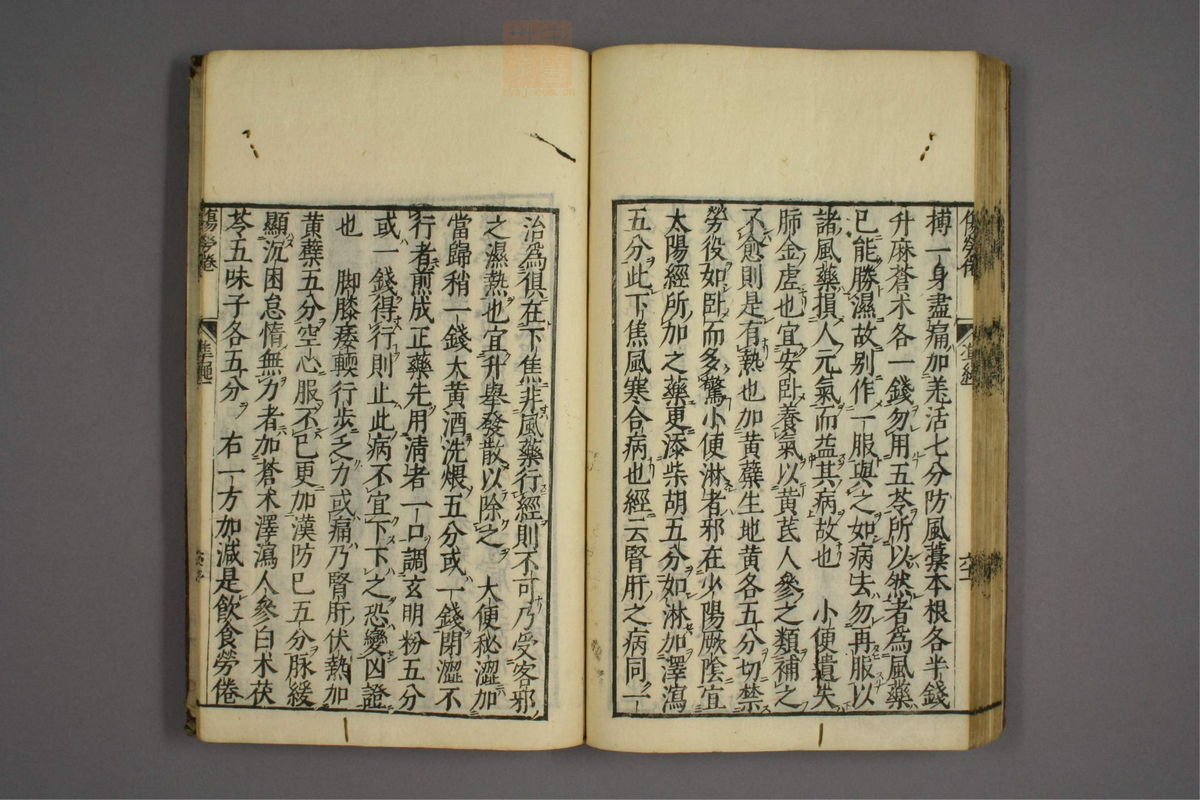 搏一身盡痛加羗活七分防風藁本根各半錢
升麻蒼术各一錢勿用五苓所以然者為風藥
已能勝濕故别作一服與之如病去勿再服以
諸風藥損人元氣而益其病故也　小便遺失
肺金虚也宜安卧養氣以黄芪人參之類補之
不愈則是有熱也加黄蘗生地黄各五分切禁
勞役如卧而多驚小便淋者邪在少陽厥陰宜
太陽經所加之藥更添柴胡五分如淋加澤瀉
五分此下焦風寒合病也經云腎肝之病同一
治為俱在下焦非風藥行經則不可乃受客邪
之濕熱也宜升舉發散以除之　大便秘澀加
當歸稍一錢大黄酒洗煨五分或一錢閉澀不
行者煎成正藥先用清者一口調玄明粉五分
或一錢得行則止此病不宜下下之恐變凶證
也　脚膝痿輭行步乏力或痛乃腎肝伏熱加
黄蘗五分空心服不已更加漢防已五分脉緩
顯沉困怠惰無力者加蒼术澤瀉人參白术茯
苓五味子各五分　右一方加減是飲食勞倦
傷勞卷